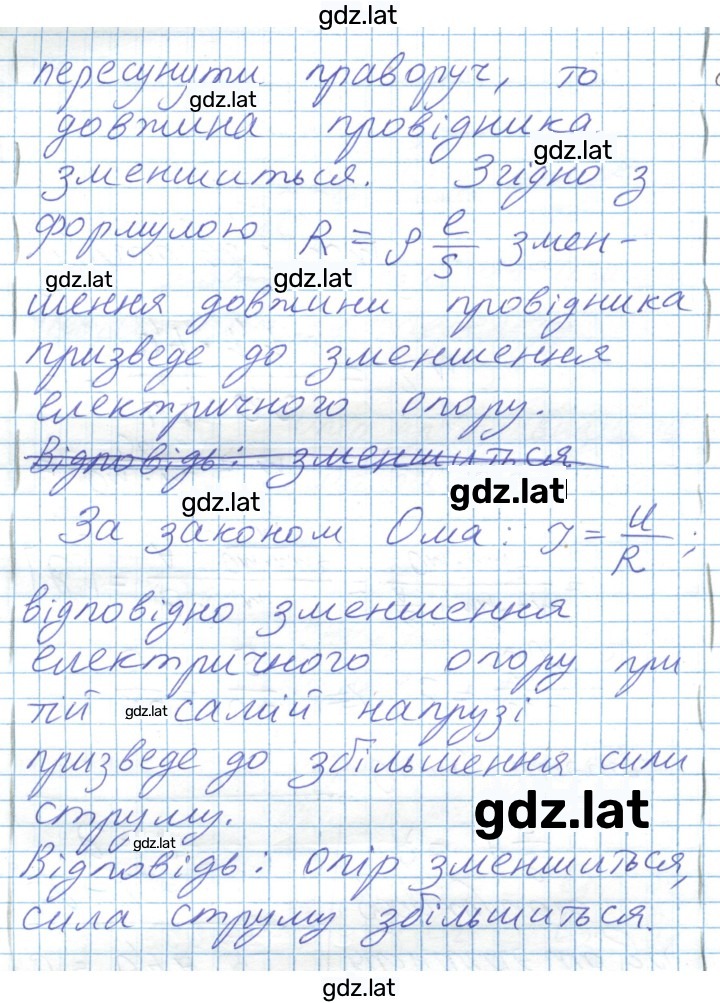 gdz.lat
пересунути праворуч, то
gdz.lat
довжина провідника
gdz.lat
зменшиться. Згідно з
формулою R = ρ l/S змен-
gdz.lat gdz.lat
шення довжини провідника
призведе до зменшення
електричного опору.
Відповідь: зменшиться.
gdz.lat gdz.lat
За законом Ома: I = U/R ;
відповідно зменшення
електричного опору при
тій gdz.lat самій напрузі
призведе до збільшення сили
струму. gdz.lat
gdz.lat
Відповідь: опір зменшиться,
сила струму збільшиться.
gdz.lat